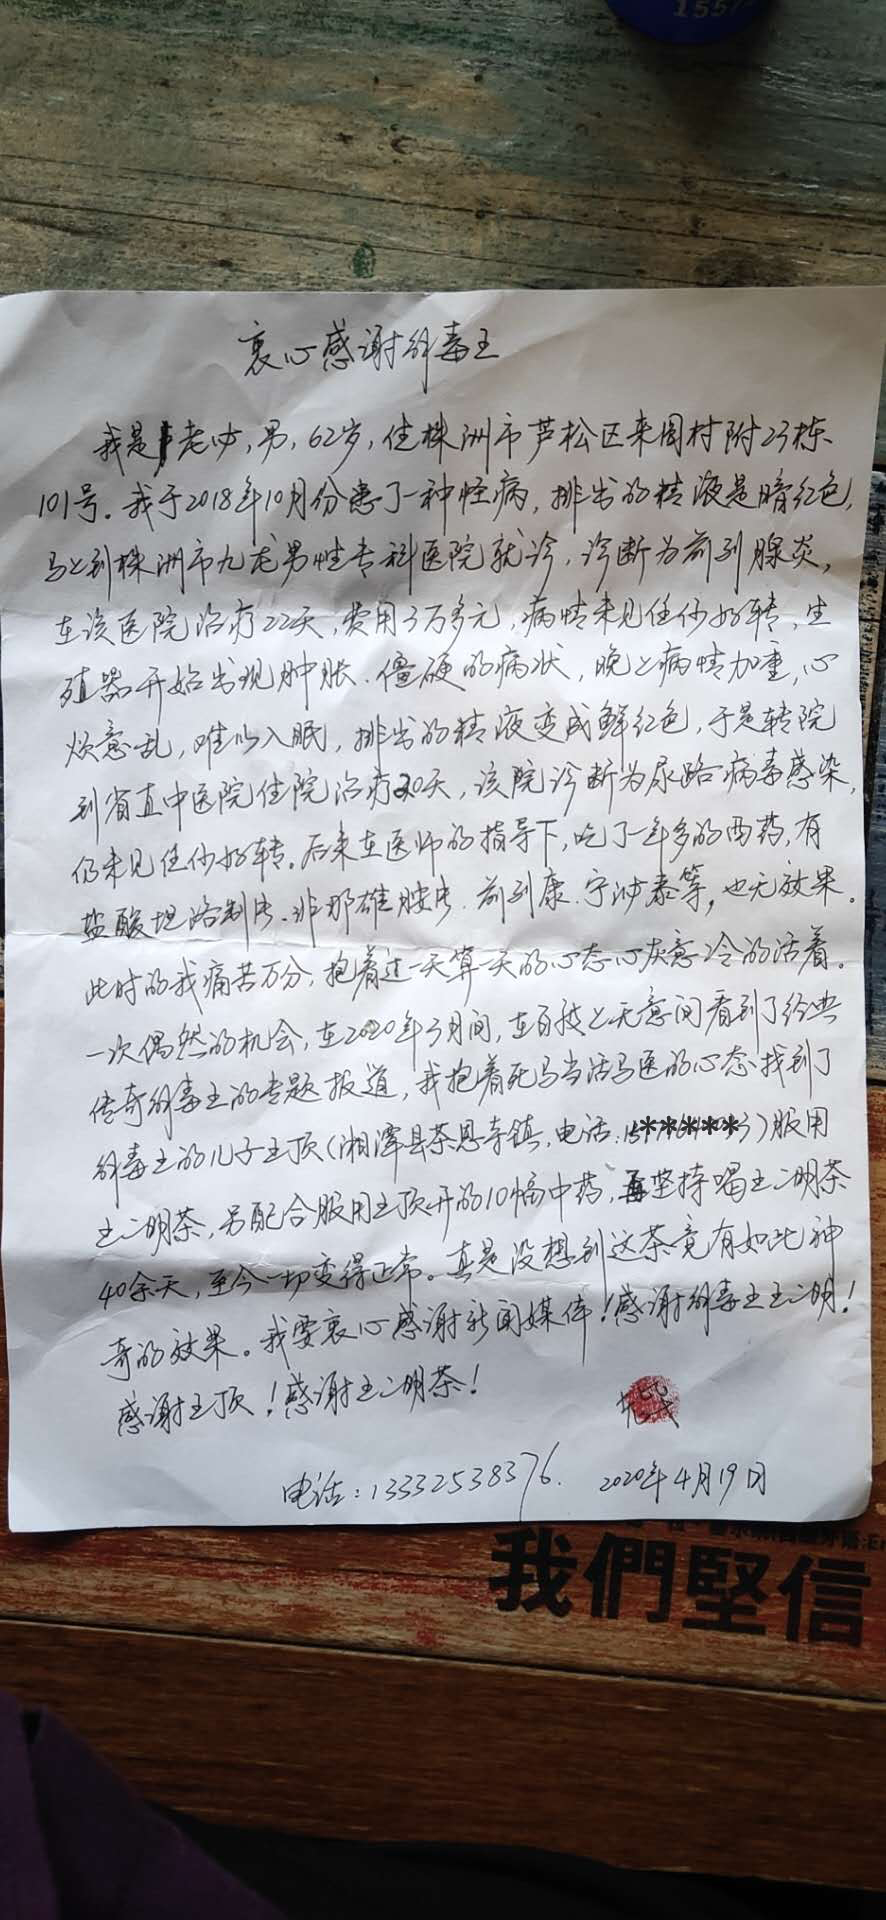 1557
衷心感谢解毒王
我是老，男，62岁，住株洲市芦松区来围村附23栋
101号。我于2018年10月份患了一种怪病，排出的精液是暗红色，
马上到株洲市九龙男性专科医院就诊，诊断为前列腺炎，
在该医院治疗22天，费用3万多元，病情未见任何好转，生
殖器开始出现肿胀、僵硬的病状，晚上病情加重，心
烦意乱，难以入眠，排出的精液变成鲜红色，于是转院
到省直中医院住院治疗20天，该院诊断为尿路病毒感染，
仍未见任何好转。后来在医师的指导下，吃了一年多的西药，有
盐酸坦洛、非那雄胺、前列康、宁泌泰等，也无效果。
此时的我痛苦万分，抱着过一天算一天的心态心灰意冷的活着。
一次偶然的机会，在2020年3月间，在百技上无意间看到了经典
传奇解毒王的专题报道，我抱着死马当活马医的心态找到了
解毒王的儿子王顶（湘潭县茶恩寺镇，电话：15*****3）服用
王二明茶，另配合服用王顶开的10幅中药，再坚持喝王二明茶
40余天，至今一切变得正常。真是没想到这茶竟有如此神
奇的效果。我要衷心感谢新闻媒体！感谢解毒王王二明！
感谢王顶！感谢王二明茶！
电话：13332538376. 2020年4月19日
我們堅信